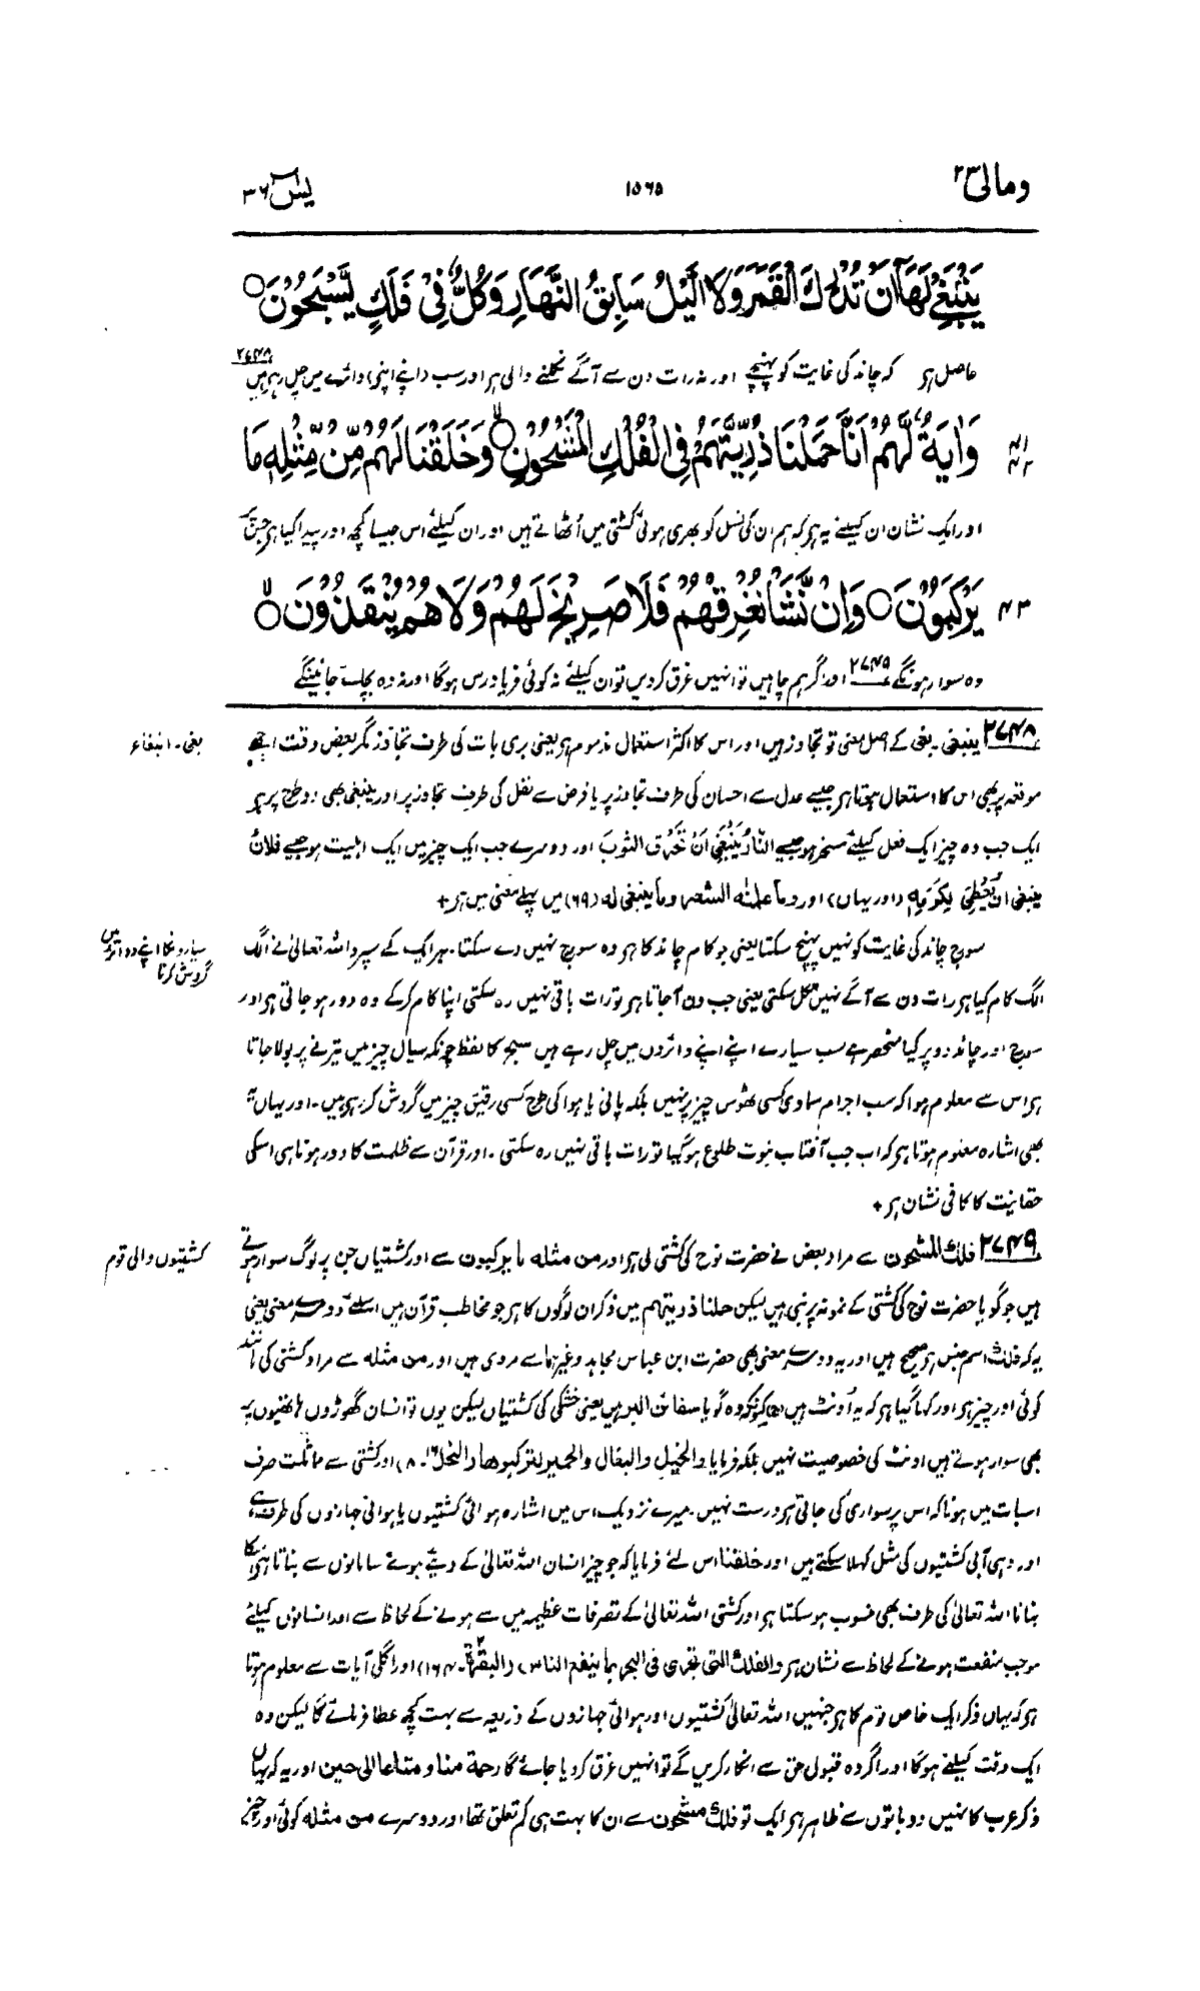 ومالی ۲۳
۱۵۶۵
یٰسٓ ۳۶
يَنْۢبَغِيْ لَهَاۤ اَنْ تُدْرِكَ الْقَمَرَ وَلَا الَّيْلُ سَابِقُ النَّهَارِ وَكُلٌّ فِيْ فَلَكٍ يَّسْبَحُوْنَ ○
حاصل ہر کہ چاند کی غایت کو پہنچے اور نہ رات دن سے آگے نکلنے والی ہر اور سب (اپنے اپنی) دائرے میں چل رہے ہیں ۲۷۴۸
وَاٰيَةٌ لَّهُمْ اَنَّا حَمَلْنَا ذُرِّيَّتَهُمْ فِي الْفُلْكِ الْمَشْحُوْنِ ○ وَخَلَقْنَا لَهُمْ مِّنْ مِّثْلِهٖ مَا
۴۱ ۴۲
اور ایک نشان ان کیلئے یہ ہر کہ ہم ان کی نسل کو بھری ہوئی کشتی میں اُٹھاتے ہیں اور ان کیلئے اس جیسا کچھ اور پیدا کیا ہر جس پر
يَرْكَبُوْنَ ○ وَاِنْ نَّشَاْ نُغْرِقْهُمْ فَلَا صَرِيْخَ لَهُمْ وَلَا هُمْ يُنْقَذُوْنَ ○
۴۳
وہ سوار ہونگے ۲۷۴۹ اور اگر ہم چاہیں تو انہیں غرق کردیں تو ان کیلئے نہ کوئی فریاد رس ہوگا اور نہ وہ بچائے جائینگے
۲۷۴۸ ینبغی۔ بغی کے اصل معنی تو تجاوز ہیں اور اس کا اکثر استعمال مذموم ہر یعنی بری بات کی طرف تجاوز مگر بعض وقت اچھے
بغی۔ ابتغاء
موقعہ پر بھی اس کا استعمال ہوتا ہر جیسے عدل سے احسان کی طرف تجاوز پر یا فرض سے نفل کی طرف تجاوز پر اور ینبغی بھی دو طرح پر ہر
ایک جب وہ چیز ایک فعل کیلئے مسخر ہو جیسے النَّارُ يَنْبَغِي اَنْ تُحْرِقَ الثَّوبَ اور دوسرے جب ایک چیز میں ایک اہلیت ہو جیسے فلانٌ
ینبغی ان یُعْطِیَ لِکَرَمِہٖ (اور یہاں) اور وما علمنٰہ الشعر وما ینبغی لہ (۶۹) میں پہلے معنی میں ہر +
سورج چاند کی غایت کو نہیں پہنچ سکتا یعنی جو کام چاند کا ہر وہ سورج نہیں دے سکتا۔ ہر ایک کے سپرد اللہ تعالیٰ نے الگ
سیارونکا اپنے دوائر میں
گردش کرنا
الگ کام کیا ہر رات دن سے آگے نہیں نکل سکتی یعنی جب دن آجاتا ہر تو رات باقی نہیں رہ سکتی اپنا کام کرکے وہ دور ہو جاتی ہر اور
سورج اور چاند دو پر کیا منحصر ہے سب سیارے اپنے اپنے دائروں میں چل رہے ہیں سبح کا لفظ چونکہ سیال چیز میں تیرنے پر بولا جاتا
ہر اس سے معلوم ہوا کہ سب اجرام سماوی کسی ٹھوس چیز پر نہیں بلکہ پانی یا ہوا کی طرح کسی رقیق چیز میں گردش کر رہے ہیں۔ اور یہاں یہ
بھی اشارہ معلوم ہوتا ہر کہ اب جب آفتاب نبوت طلوع ہوگیا تو رات باقی نہیں رہ سکتی۔ اور قرآن سے ظلمت کا دور ہونا ہی اسکی
حقانیت کا کافی نشان ہر +
۲۷۴۹ فلک المشحون سے مراد بعض نے حضرت نوح کی کشتی لی ہر اور من مثلہ ما یرکبون سے اور کشتیاں جن پر لوگ سوار ہوتے
کشتیوں والی قوم
ہیں جو گویا حضرت نوح کی کشتی کے نمونہ پر بنی ہیں لیکن حملنا ذریتہم میں ذکر ان لوگوں کا ہر جو مخاطب قرآن ہیں اسلئے دوسرے معنی یعنی
یہ کہ فلک اسم جنس ہر صحیح ہیں اور یہ دوسرے معنی بھی حضرت ابن عباس مجاہد وغیرہما سے مروی ہیں اور من مثلہ سے مراد کشتی کی مانند
کوئی اور چیز ہر اور کہا گیا ہر کہ یہ اُونٹ ہیں کیونکہ وہ گویا سفائن البر ہیں یعنی خشکی کی کشتیاں لیکن یوں تو انسان گھوڑوں ہاتھیوں پر
بھی سوار ہوتے ہیں اونٹ کی خصوصیت نہیں بلکہ فرمایا والخیل والبغال والحمیر لترکبوھا (النحل ۱۶۔۸) اور کشتی سے مماثلت صرف
اسبات میں ہونا کہ اس پر سواری کی جاتی ہر درست نہیں۔ میرے نزدیک اس میں اشارہ ہوائی کشتیوں یا ہوائی جہازوں کی طرف ہے
اور وہی آبی کشتیوں کی مثل کہلا سکتے ہیں اور خلقنا اس لئے فرمایا کہ جو چیز انسان اللہ تعالیٰ کے دیئے ہوئے سامانوں سے بناتا ہر اسکا
بنانا اللہ تعالیٰ کی طرف بھی منسوب ہو سکتا ہر اور کشتی اللہ تعالیٰ کے تصرفات عظیمہ میں سے ہونے کے لحاظ سے اور انسانوں کیلئے
موجب منفعت ہونے کے لحاظ سے نشان ہر والفلک التی تجری فی البحر بما ینفع الناس (البقرۃ ۲۔۱۶۴) اور اگلی آیات سے معلوم ہوتا
ہر کہ یہاں ذکر ایک خاص قوم کا ہر جنہیں اللہ تعالیٰ کشتیوں اور ہوائی جہازوں کے ذریعہ سے بہت کچھ عطا فرمائے گا لیکن وہ
ایک وقت کیلئے ہوگا اور اگر وہ قبولی حق سے انکار کریں گے تو انہیں غرق کر دیا جائے گا رحمۃ منا و متاعا الی حین اور یہ کہ یہاں
ذکر عرب کا نہیں دو باتوں سے ظاہر ہر ایک تو فلک مشحون سے ان کا بہت ہی کم تعلق تھا اور دوسرے من مثلہ کوئی اور چیز